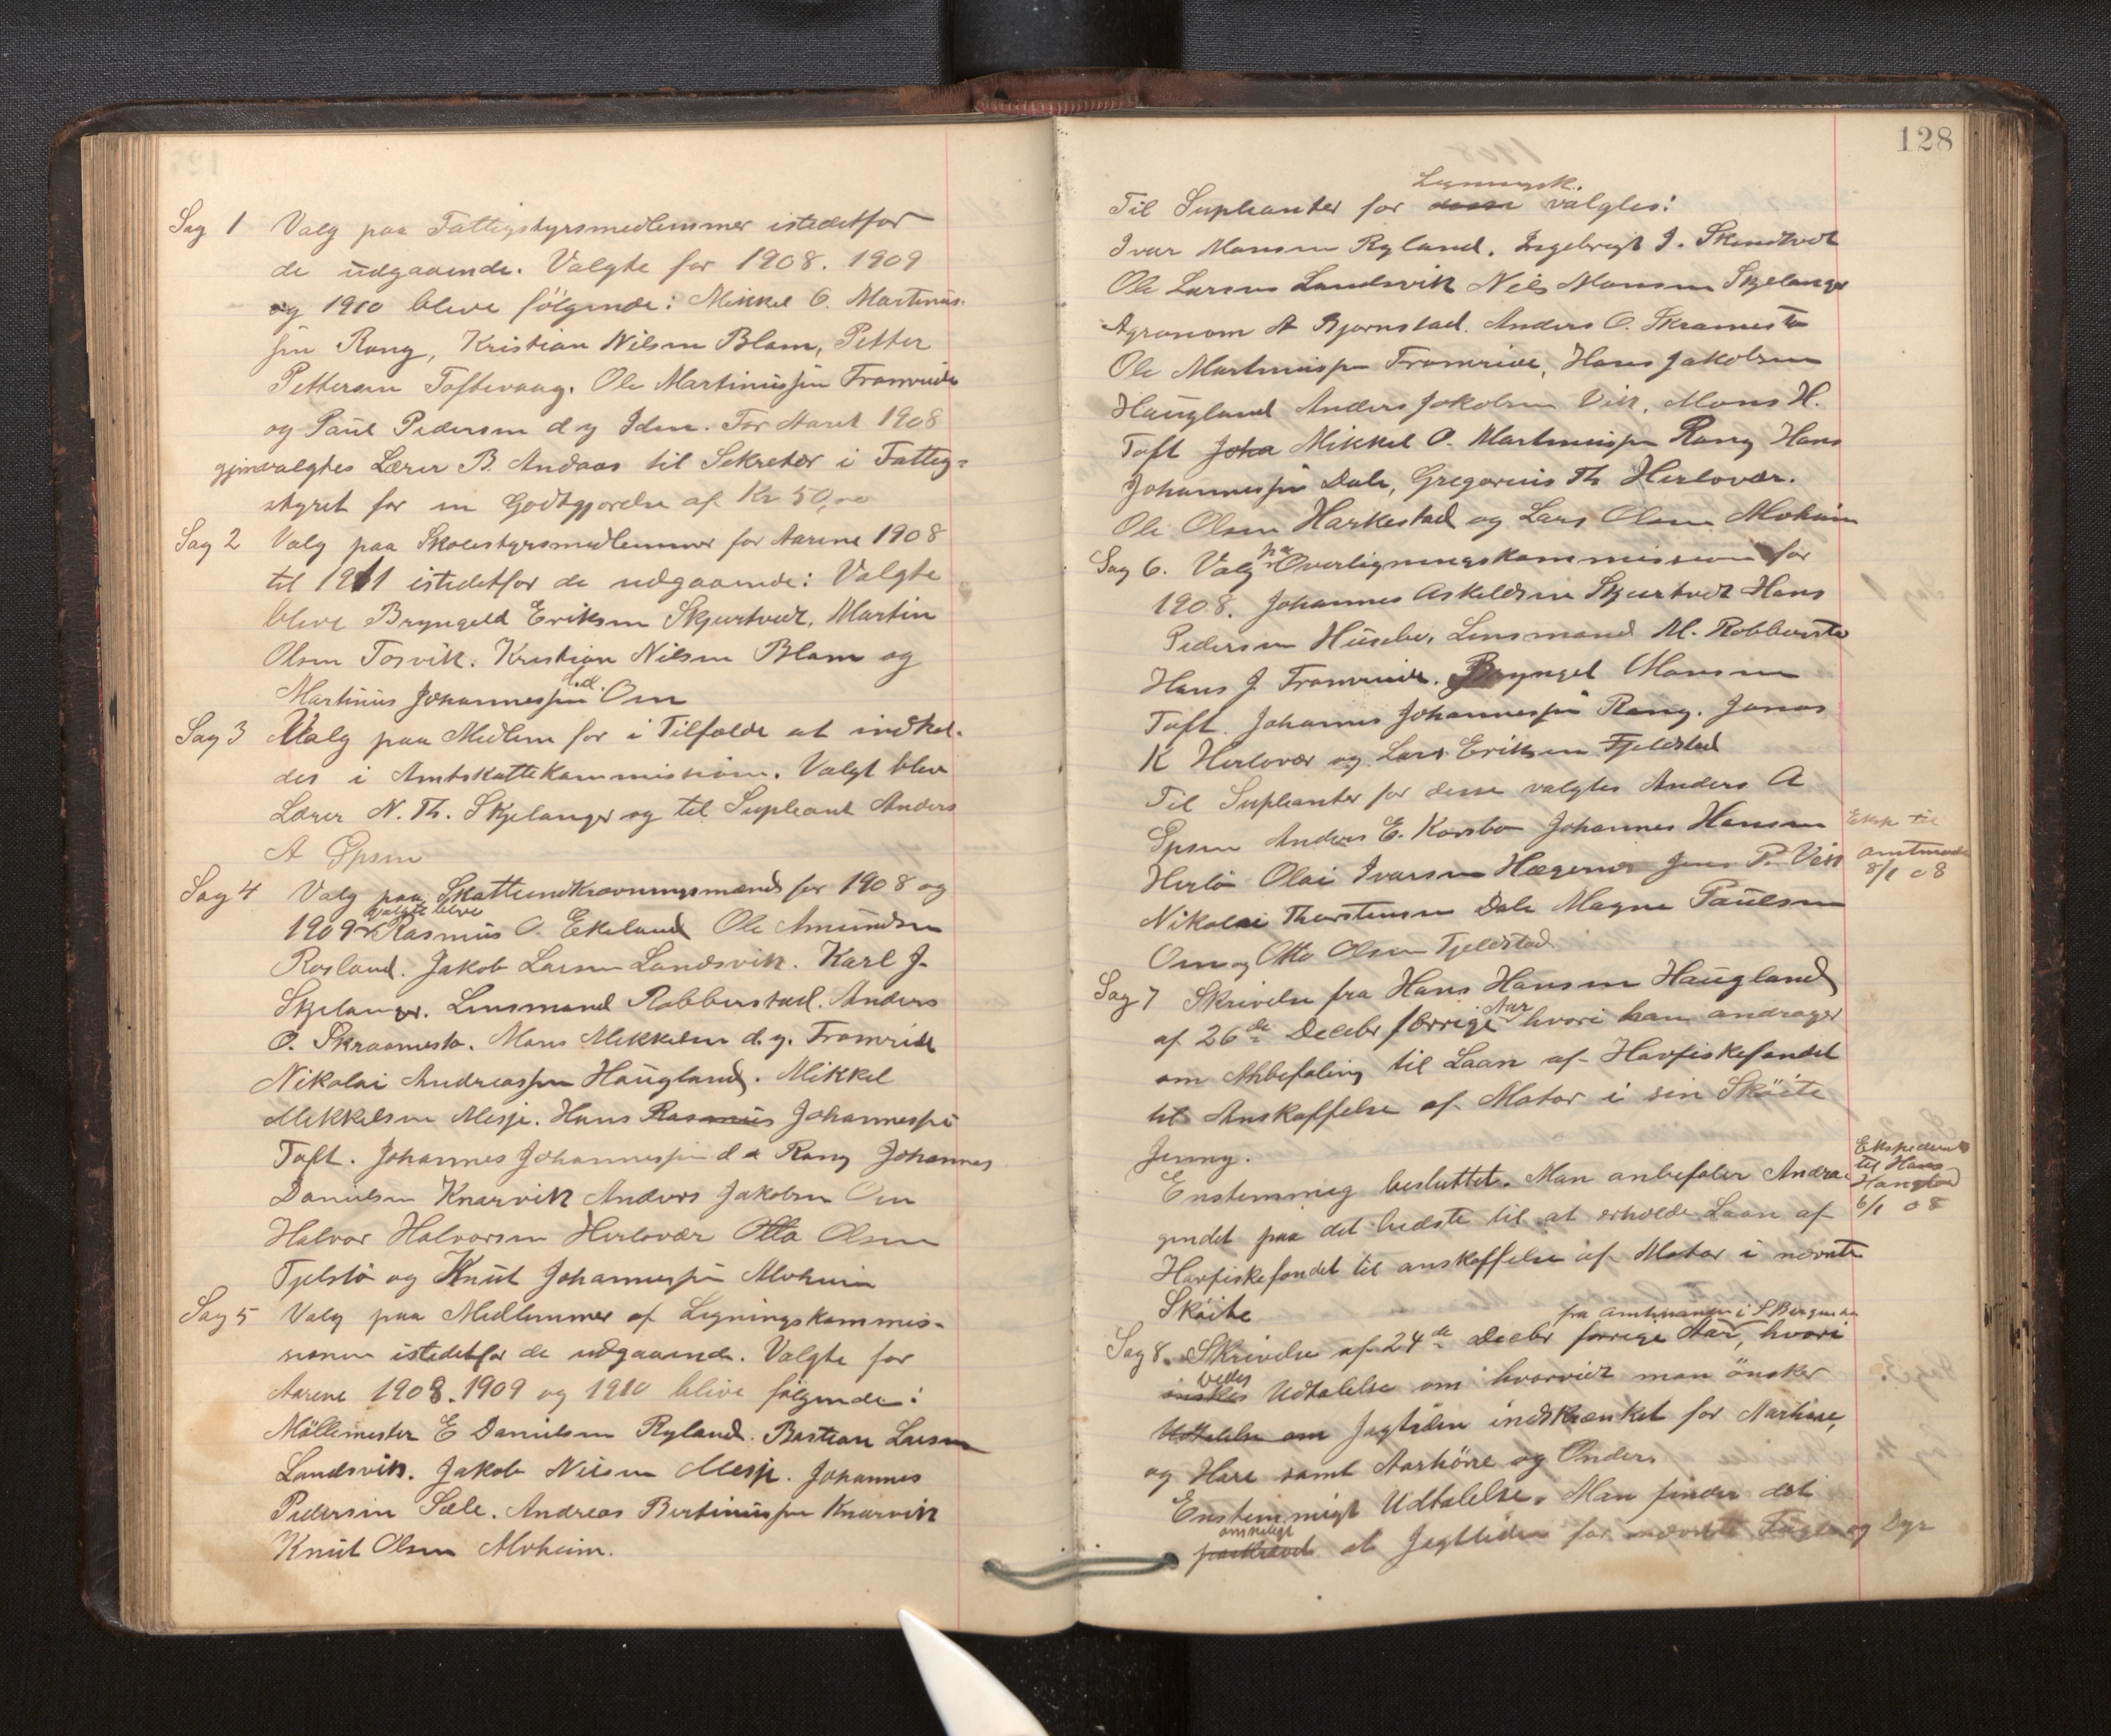 Sag 1 Valg paa Fattigstyrsmedlemmer istedetfor
de udgaaende. Valgte for 1908. 1909
og 1910 bleve følgende: Mikkel O. Martinus-
sen Rong, Kristian Nilsen Blom, Petter
Pettersen Toftevaag. Ole Martinussen Fromreide
og Paul Pedersen d y Iden. For Aaret 1908
gjenvalgtes Lærer B. Andaas til Sekretær i Fattig-
styret for en Godtgjørelse af Kr 50,00
Sag 2 Valg paa Skolestyrsmedlemmer for Aarene 1908
til 1911 istedetfor de udgaaende: Valgte
bleve Bryngeld Eriksen Skjertvedt, Martin
Olsen Torvik. Kristian Nilsen Blom og
Martinus Johannessen d.æ. Oen
Sag 3 Valg paa Medlem for i Tilfælde at indkal-
des i Amtskattekommissionen. Valgt blev
Lærer N. Th. Skjelanger og til Supleant Anders
A Epsen
Sag 4 Valg paa Skatteindkrævningsmænd for 1908 og
1909. valgte bleve Rasmus O. Ekeland Ole Amundsen
Rosland. Jakob Larsen Landsvik. Karl J.
Skjelanger. Lensmand Robberstad. Anders
O. Skraamestø. Mons Mikkelsen d.y. Fromreide
Nikolai Andreassen Haugland. Mikkel
Mikkelsen Mesje. Hans Rasmus Johannessen
Toft. Johannes Johannessen d æ Rong Johannes
Danielsen Knarvik Anders Jakobsen Oen
Halvor Halvorsen Herlovær Otto Olsen
Tjelstø og Knut Johannessen Alvheim
Sag 5 Valg paa Medlemmer af Ligningskommis-
sionen istedetfor de udgaaende. Valgte for
Aarene 1908. 1909 og 1910 blive følgende:
Møllemester E Danielsen Ryland. Bastian Larsen
Landsvik. Jakob Nilsen Mesje. Johannes
Pedersen Sæle. Andreas Bertinussen Knarvik
Knut Olsen Alvheim.
128
Til Supleanter for desse Ligningsk. valgtes:
Ivar Monsen Ryland. Ingebrigt J. Skjertvedt
Ole Larsen Landsvik Nils Monsen Skjelanger
Agronom A Bjørnstad. Anders O. Skramestø
Ole Martinussen Fromreide, Hans Jakobsen
Haugland Anders Jakobsen Vik, Mons H.
Toft Joha Mikkel O. Martinussen Rong Hans
Johannessen Dale, Gregorius Th Herlovær.
Ole Olsen Harkestad og Lars Olsen Alvheim
Sag 6. Valg paa Overligningskommission for
1908. Johannes Askeldsen Skjertvedt Hans
Pedersen Husebø, Lensmand M. Robberstad
Hans J Fromreide. Bryngel Monsen
Toft. Johannes Johannessen Rong. Jonas
K Herlovær og Lars Eriksen Tjeldstad
Til Supleanter for desse valgtes Anders A
Epsen Anders E. Korsbø Johannes Hansen
Herlø Olai Ivarsen Hægernes Jens P. Vik
Nikolai Thorstensen Dale Magne Paulsen
Oen og Otto Olsen Tjeldstad
Eksp til
amtmand
8/1 08
Sag 7 Skrivelse fra Hans Hansen Haugland
af 26de Decbr forrige Aar hvori han andrager
om Anbefaling til Laan af Havfiskefondet
til Anskaffelse af Motor i sin Skøite
Jenny.
Enstemmig besluttet. Man anbefaler Andra-
gendet paa det bedste til at erholde Laan af
Havfiskefondet til anskaffelse af Motor i nævnte
Skøite
Ekspederet
til Hans
Haugland
6/1 08
Sag 8. Skrivelse af 24de Decbr forrige Aar, fra Amtmanden i S Bergenhus hvori
ønskes bedes Udtalelse om hvorvidt man ønsker
Udtalelse om Jagttiden indskrænket for Aarhane,
og Hare samt Aarhøne og Ænder.
Enstemmigt Udtalelse. Man finder det
paakrævet ønskeligt at Jagttiden for nævnte Fugle og Dyr